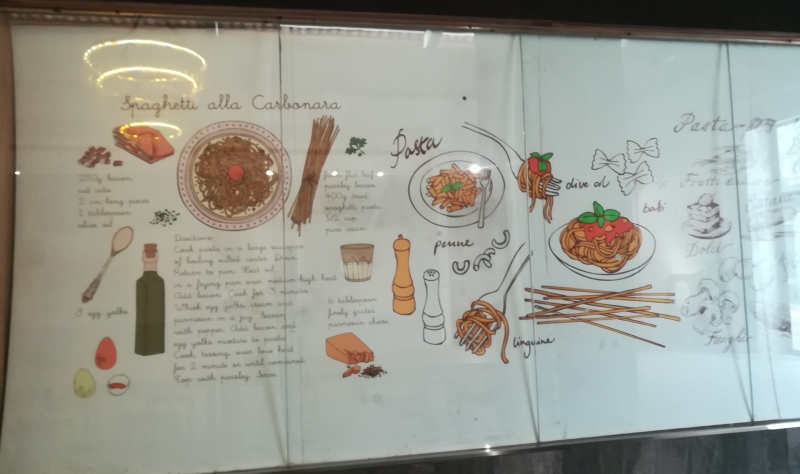 Spaghetti alla Carbonara
250g bacon
cut into
2 cm long pieces
1 tablespoon
olive oil
flat leaf
parsley leaves
400g dried
spaghetti pasta
1/2 cup
pure cream
3 egg yolks
Directions:
Cook pasta in a large saucepan
of boiling salted water. Drain.
Return to pan. Heat oil
in a frying pan over medium high heat
Add bacon. Cook for 5 minutes
Whisk egg yolks, cream and
parmesan in a jug. Season
with pepper. Add bacon and
egg yolks mixture to pasta
Cook tossing over low heat
for 2 minute or until combined
Top with parsley. Serve
6 tablespoon
finely grated
parmesan cheese
Pasta
penne
olive oil
linguine
Pasta
Frutti
Dolci
Funghi